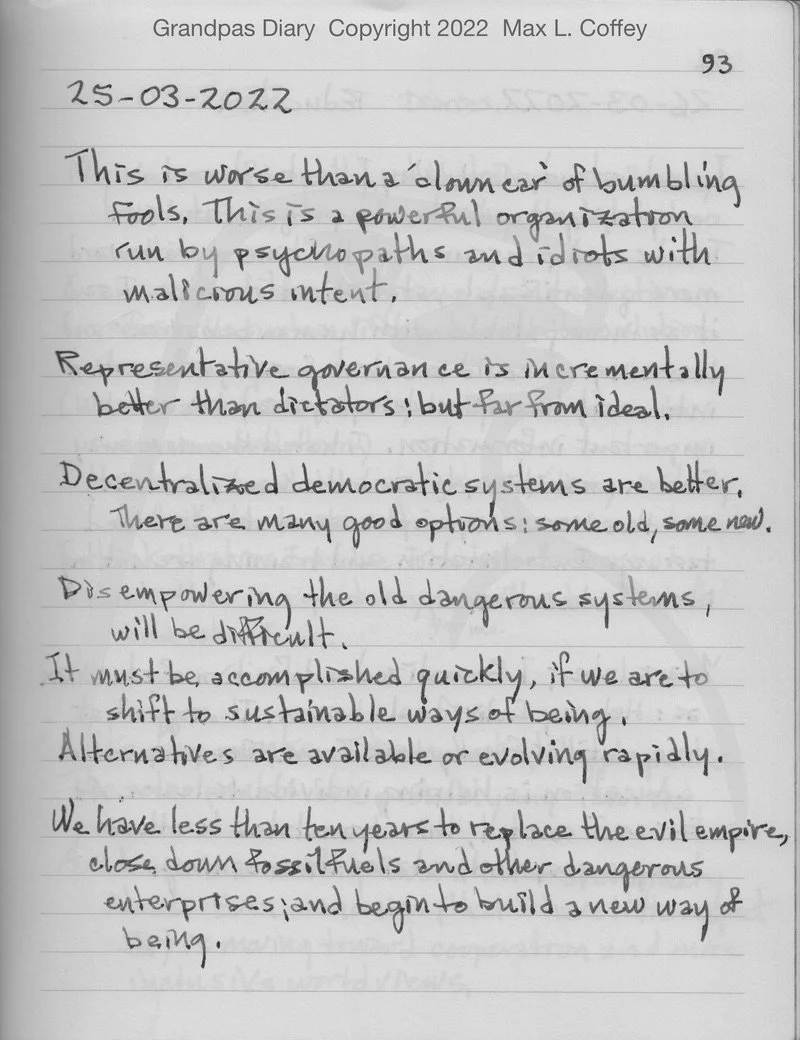 Grandpas Diary Copyright 2022 Max L. Coffey
93
25-03-2022
This is worse than a 'clown car' of bumbling
fools. This is a powerful organization
run by psychopaths and idiots with
malicious intent.
Representative governance is incrementally
better than dictators; but far from ideal.
Decentralized democratic systems are better.
There are many good options: some old, some new.
Disempowering the old dangerous systems,
will be difficult.
It must be accomplished quickly, if we are to
shift to sustainable ways of being.
Alternatives are available or evolving rapidly.
We have less than ten years to replace the evil empire,
close down fossil fuels and other dangerous
enterprises; and begin to build a new way of
being.